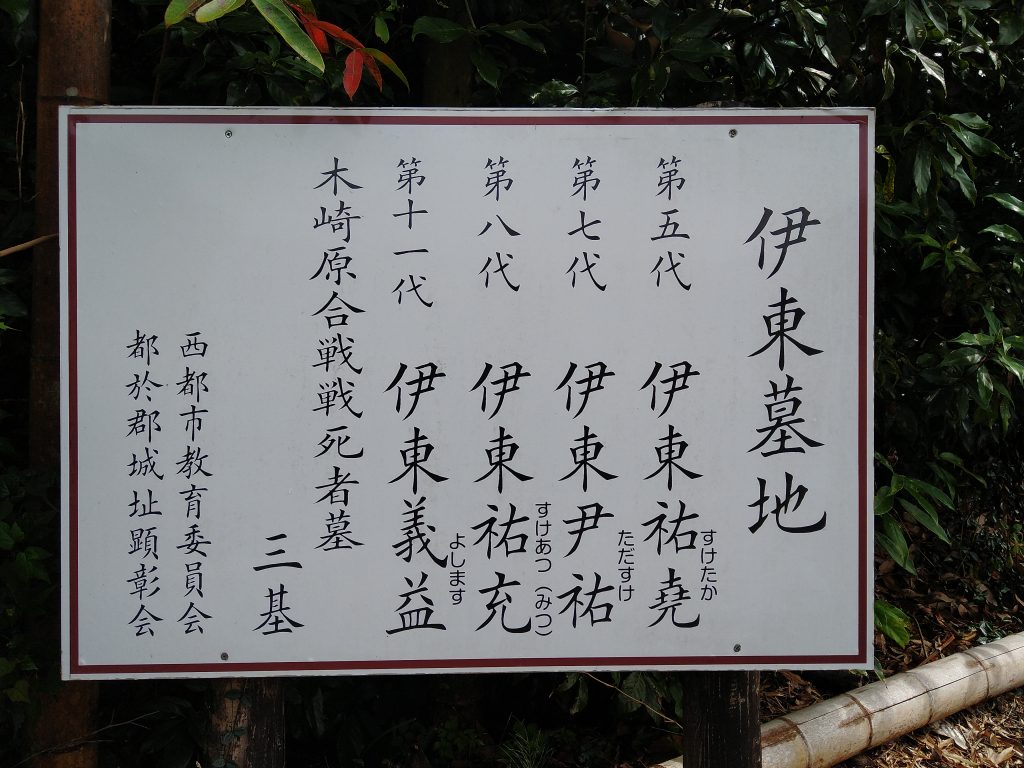 伊東墓地
第五代 伊東祐堯
すけたか
第七代 伊東尹祐
ただすけ
第八代 伊東祐充
すけあつ(みつ)
第十一代 伊東義益
よします
木崎原合戦戦死者墓
三基
西都市教育委員会
都於郡城址顕彰会